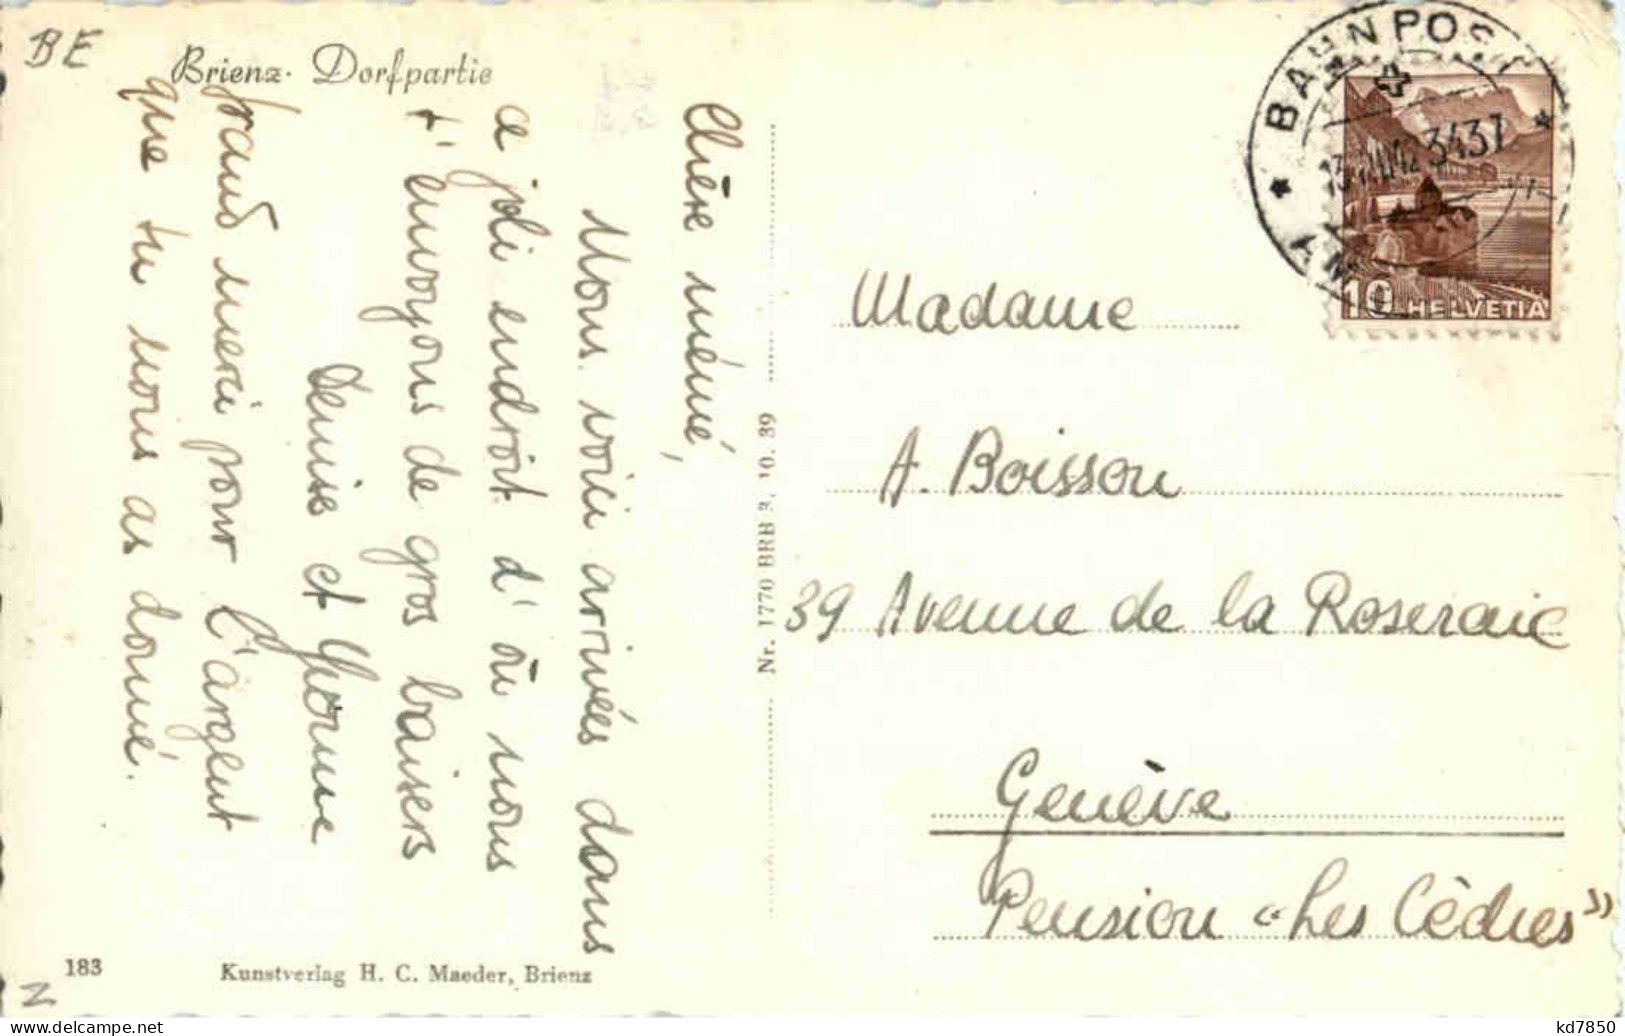 BE
Brienz. Dorfpartie
Chère mémé,
Nous voici arrivées dans
ce joli endroit d'où nous
t'envoyons de gros baisers
Denise et
Grand merci pour l'argent
que tu nous as donné.
Nr. 1770 BRB 3. 10. 39
BAHNPOST
3437
10 HELVETIA
Madame
A. Boisson
39 Avenue de la Roseraie
Genève
Pension «Les Cèdres»
183
Kunstverlag H. C. Maeder, Brienz
N
kd7850